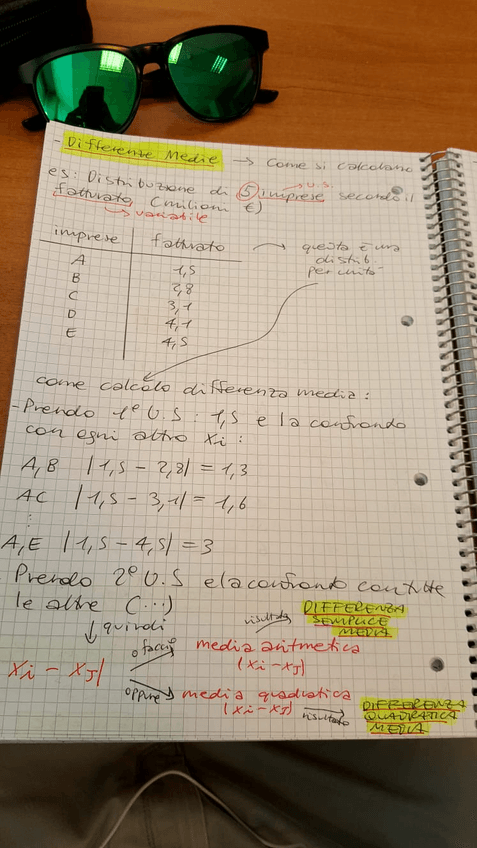 - Differenze Medie → Come si calcolano
es: Distribuzione di 5 imprese secondo il
→ U.S.
fatturato (milioni €)
→ variabile
imprese fatturato → questa è una
A 1,5 distrib.
B 2,8 per unità
C 3,1
D 4,1
E 4,5
come calcolo differenza media:
- Prendo 1° U.S: 1,5 e la confronto
con ogni altro xi:
A,B |1,5 - 2,8| = 1,3
AC |1,5 - 3,1| = 1,6
⋮
A,E |1,5 - 4,5| = 3
Prendo 2° U.S e la confronto con tutte
le altre (...)
↓ quindi
risultato DIFFERENZA
SEMPLICE
MEDIA
o faccio media aritmetica
(xi - xJ)
xi - xJ|
oppure media quadratica
(xi - xJ) risultato DIFFERENZA
QUADRATICA
MEDIA